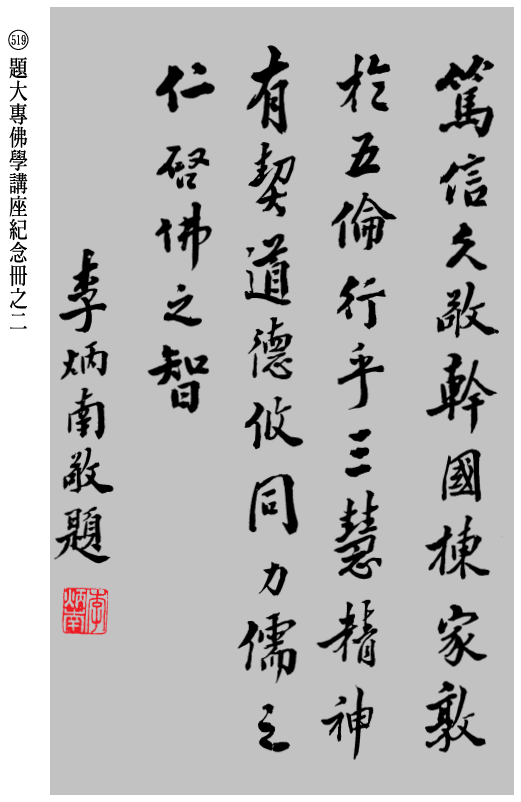 篤信久敬幹國棟家敦
於五倫行乎三慧精神
有契道德攸同力儒之
仁啓佛之智
李炳南敬題
李炳南
519 題大專佛學講座紀念冊之二